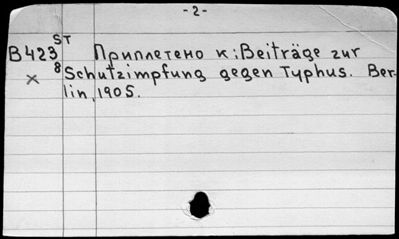 -2-
ST
B423 Приплетено к: Beiträge zur
8 Schutzimpfung gegen Typhus. Ber-
x lin, 1905.